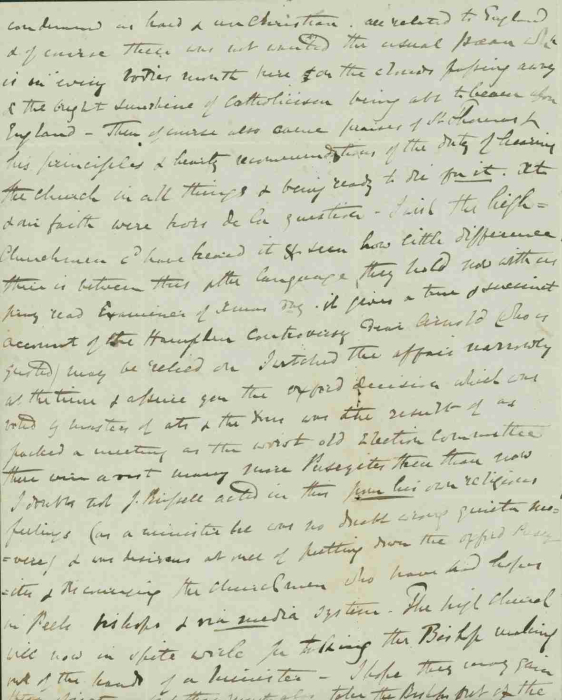 condemned as hard & unChristian. all related to England
& of course there was not wanted the usual paean wh
is in every bodies mouth here of the clouds passing away
& the bright sunshine of Catholicism being abt to beam upon
England - Then of course also came praises of St Thomas &
his principles & hearty recommendations of the duty of hearing
the Church in all things & being ready to die for it.
& our faith were hors de la question - I wish the high =
Churchmen cd have heard it & seen how little difference
there is between this & the language they hold now with us
pray read Examiner of Xmas day. it gives a true & succinct
account of the Hampden Controversy Dear Arnold (who is
quoted) may be relied on I watched the affair narrowly
at the time & assure you the Oxford decision which was
voted by masters of arts & the was the result of as
packed a meeting as the worst old Election Committee
there were a vast many more Puseyites then than now
I doubt not J. Russell acted in this from his own religious
feelings (as a minister he was no doubt wrong quieta
) & was desirous at once of putting down the Oxford
& discouraging the Churchmen who have had hopes
in Peels bishops & via media system. The high Church
will now in spite for taking the Bishp making
out of the hands of a Minister - I hope they may gain
also take the Bishps out of the